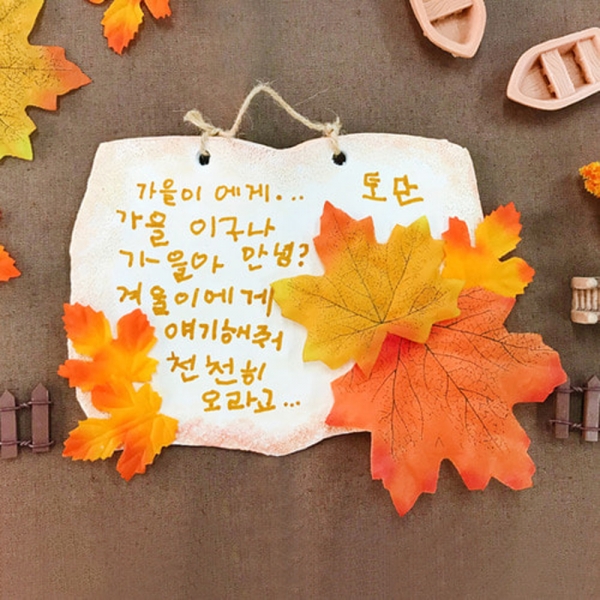 가을이에게...
토단
가을 이구나
가을아 안녕?
겨울이에게
얘기해줘
천천히
오라고...